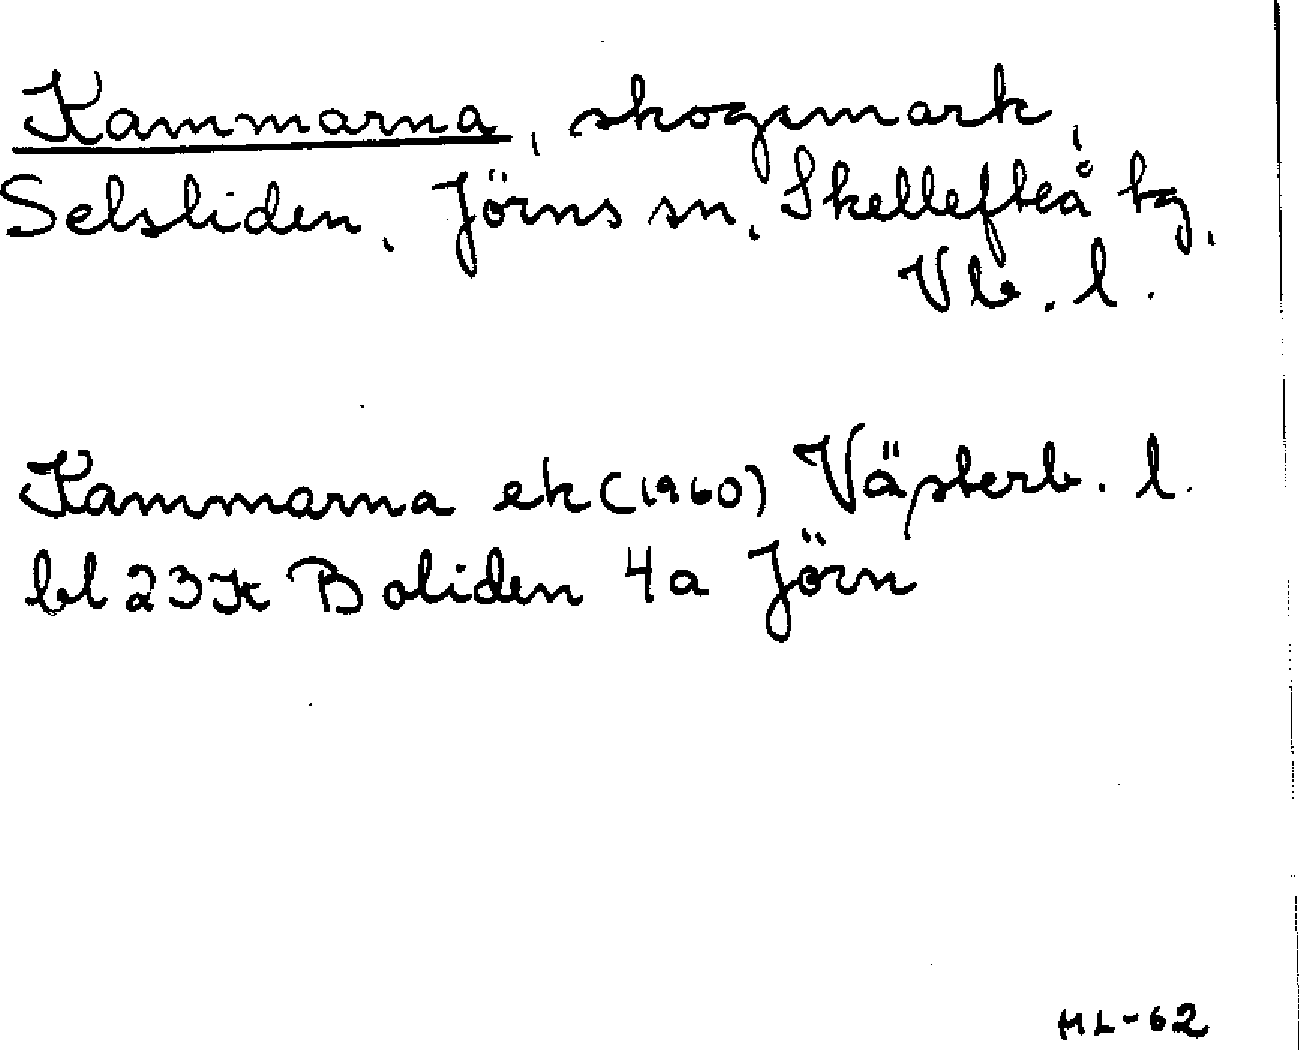 Kammarna, skogsmark,
Selsliden, Jörns sn, Skellefteå tg,
Vb. l.
Kammarna ek (1960) Västerb. l.
bl 23K Boliden 4a Jörn
HL-62